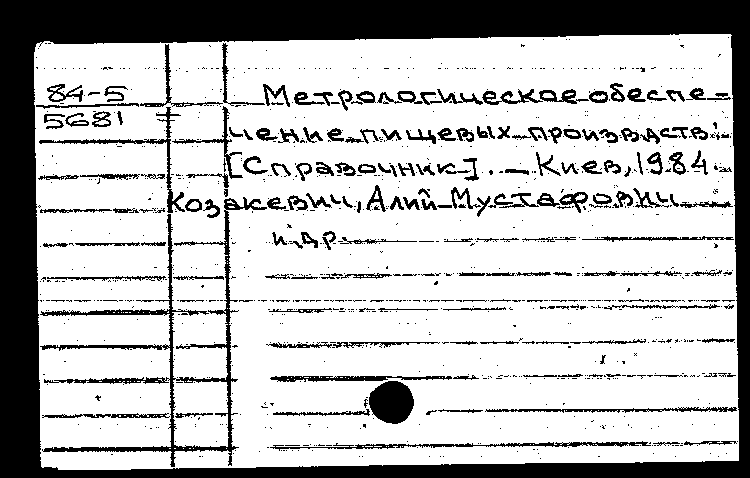 84-5
5681
Метрологическое обеспе-
чение пищевых производств:
[Справочник]. — Киев, 1984.
Козакевич, Алий Мустафович
и др.